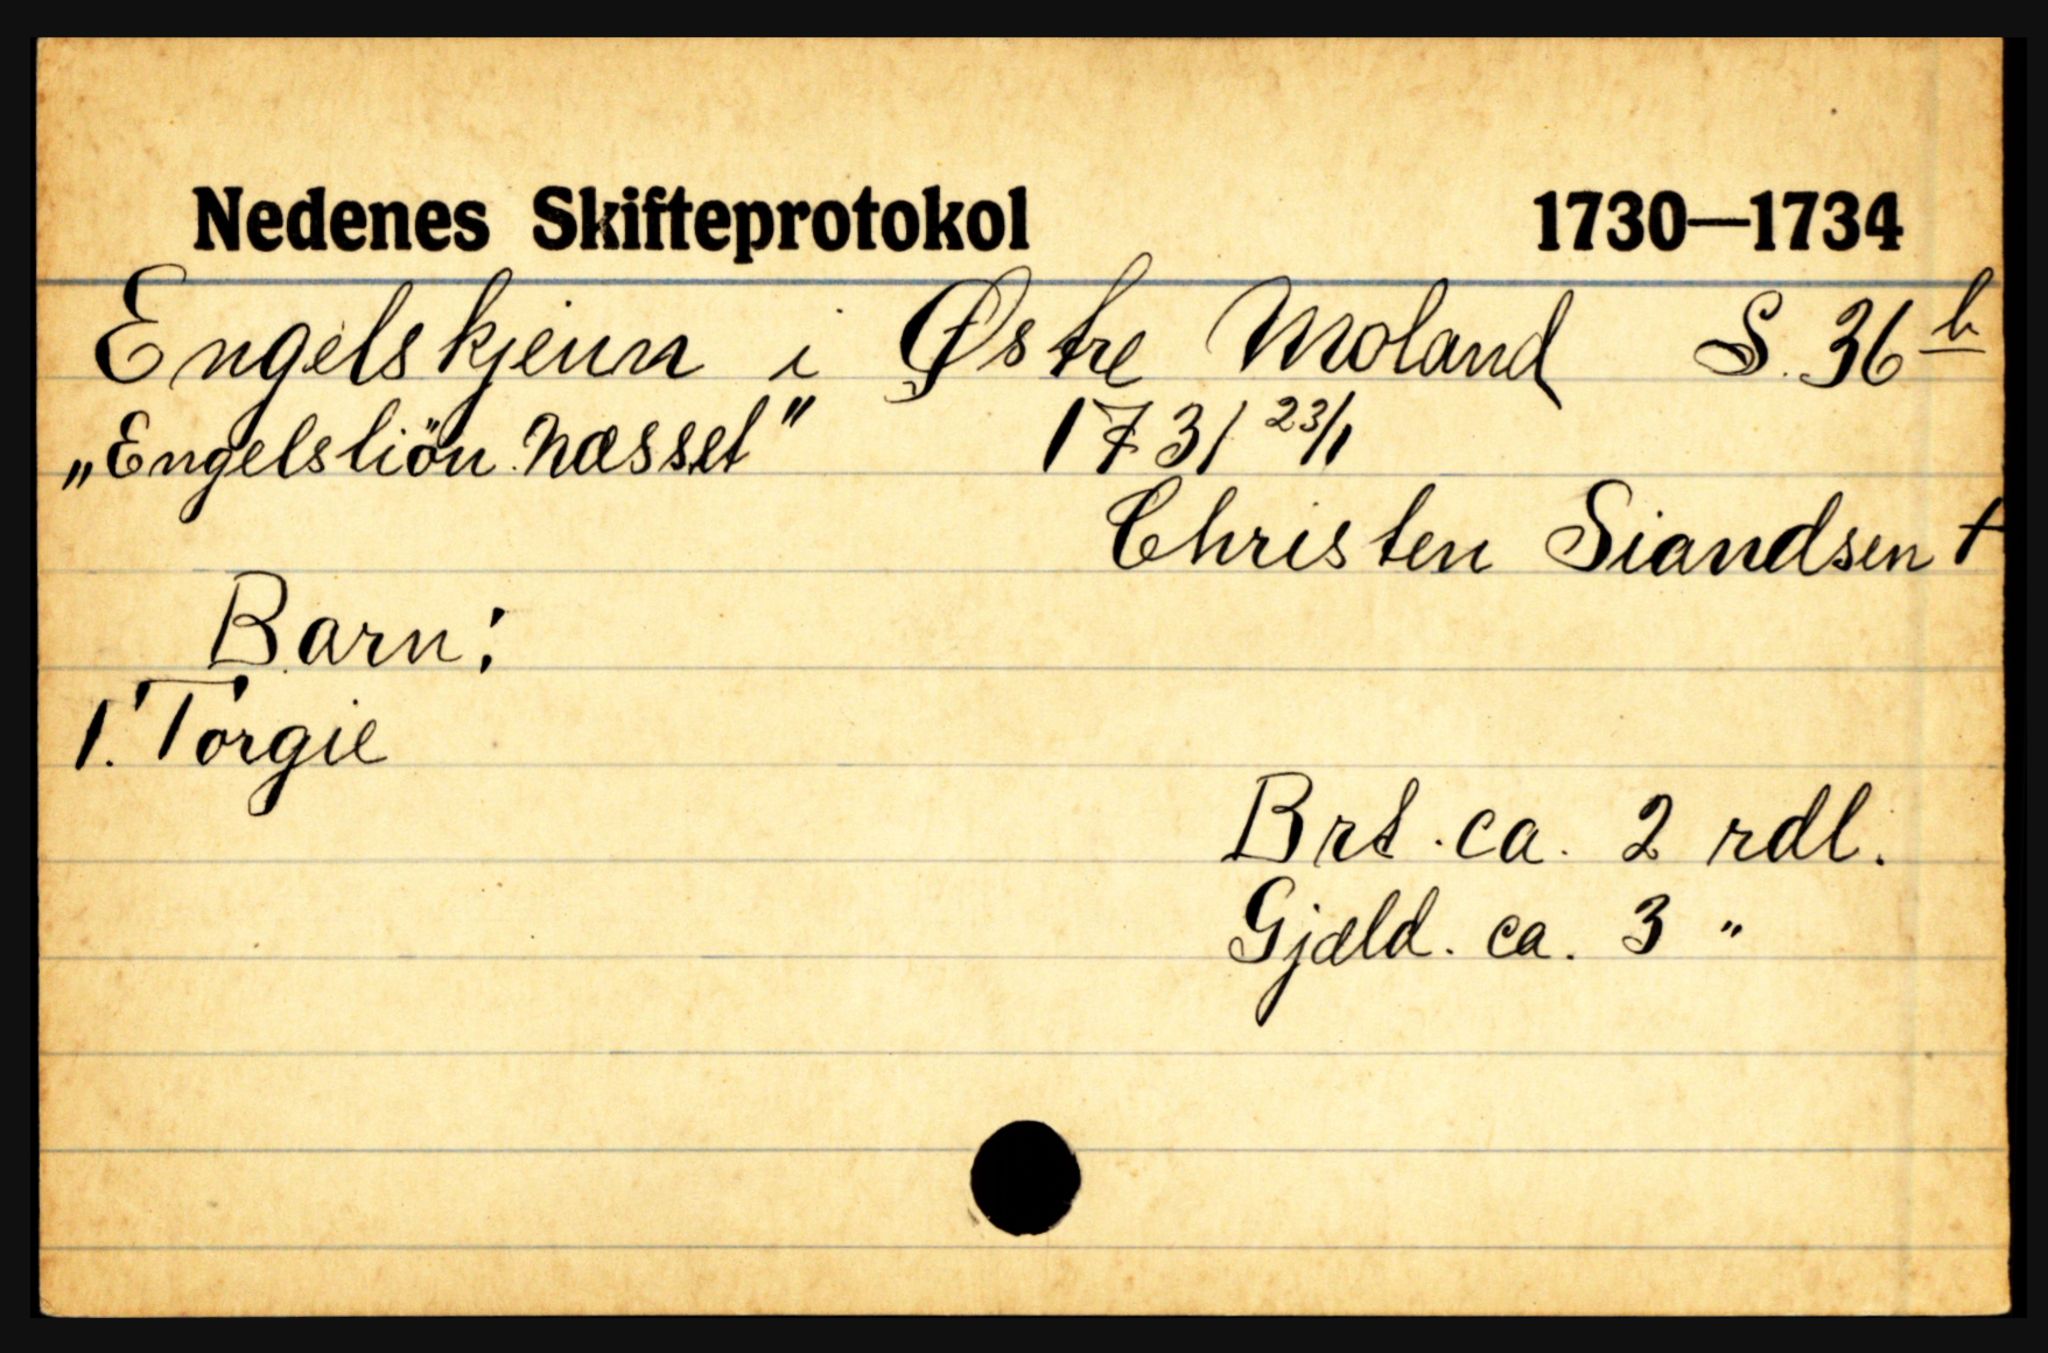 Nedenes Skifteprotokol 1730—1734
Engelskjenn i Østre Moland S. 36 b
„Engelstiön næsset" 1731 23/1
Christen Siandsen †
Barn:
1. Torgie
Brt. ca. 2 rdl.
Gjæld. ca. 3 "